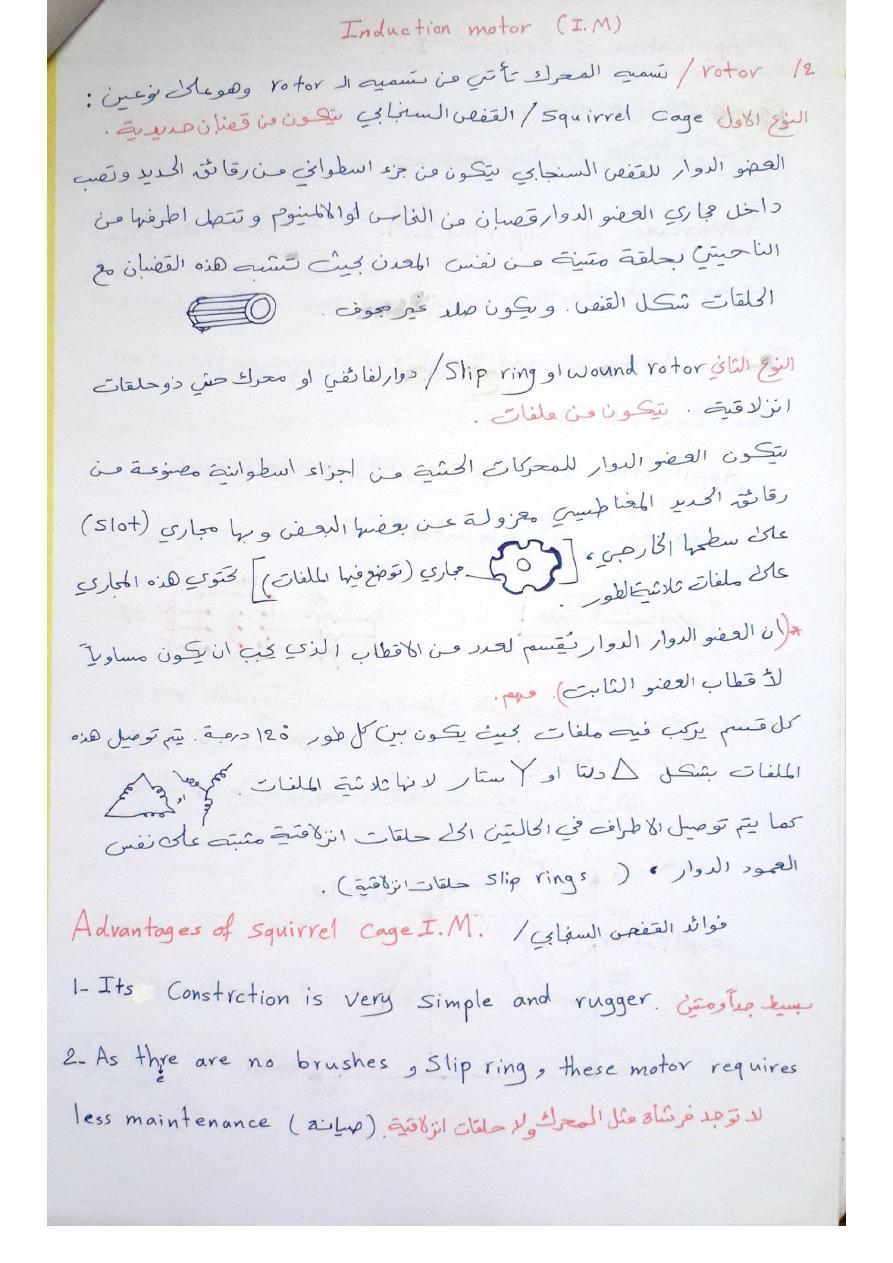 Induction motor (I.M)
2/ rotor / تسميه المحرك تأتي من تسميه الـ rotor وهو على نوعين :
النوع الاول Squirrel cage / القفص السنجابي يتكون من قضبان حديدية .
العضو الدوار للقفص السنجابي يتكون من جزء اسطواني من رقائق الحديد وتصب
داخل مجاري العضو الدوار قصبان من النحاس او الالمينوم وتتصل اطرفها من
الناحيتين بحلقة متينة من نفس المعدن بحيث تشبه هذه القضبان مع
الحلقات شكل القفص . ويكون صلد غير مجوف .
النوع الثاني wound rotor او Slip ring / دوار لفائفي او محرك حثي ذو حلقات
انزلاقية . يتكون من ملفات .
يتكون العضو الدوار للمحركات الحثية من اجزاء اسطوانية مصنوعة من
رقائق الحديد المغناطيسي معزولة عن بعضها البعض وبها مجاري (Slot)
على سطحها الخارجي ، [ مجاري (توضع فيها الملفات) ] تحتوي هذه المجاري
على ملفات ثلاثية الطور .
*(ان العضو الدوار الدوار يُقسم لعدد من الاقطاب الذي يجب ان يكون مساوياً
لأقطاب العضو الثابت). مهم.
كل قسم يركب فيه ملفات بحيث يكون بين كل طور 120 درجة . يتم توصيل هذه
الملفات بشكل Δ دلتا او Y ستار لانها ثلاثية الملفات . او
كما يتم توصيل الاطراف في الحالتين الى حلقات انزلاقية مثبته على نفس
العمود الدوار ، ( Slip rings حلقات انزلاقية ) .
Advantages of Squirrel Cage I.M. / فوائد القفص السنجابي
1- Its Constrction is very simple and rugger. بسيط جداً ومتين
2- As thre e are no brushes , Slip ring , these motor requires
less maintenance ( صيانه ) . لا توجد فرشاة مثل المحرك ولا حلقات انزلاقية